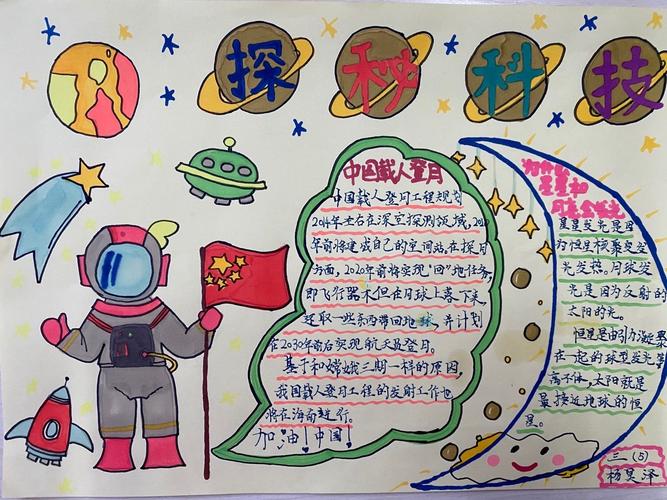 探秘科技
中国载人登月
中国载人登月工程规划
2014年左右在深空探测领域,2020
年前将建成自己的空间站。在探月
方面,2020年前将实现"回"地任务,
即飞行器不但在月球上落下来,
还取一些东西带回地球,并计划
在2030年前后实现航天员登月。
基于和嫦娥三期一样的原因,
我国载人登月工程的发射工作也
将在海南进行。
加油!中国!
为什么
星星和
月亮会发光
星星发光是因
为恒星核聚变变
光发热。月球发
光是因为反射的
太阳的光。
恒星是由引力凝聚
在一起的球型发光等
离子体,太阳就是
最接近地球的恒
星。
三(5)
杨昊泽